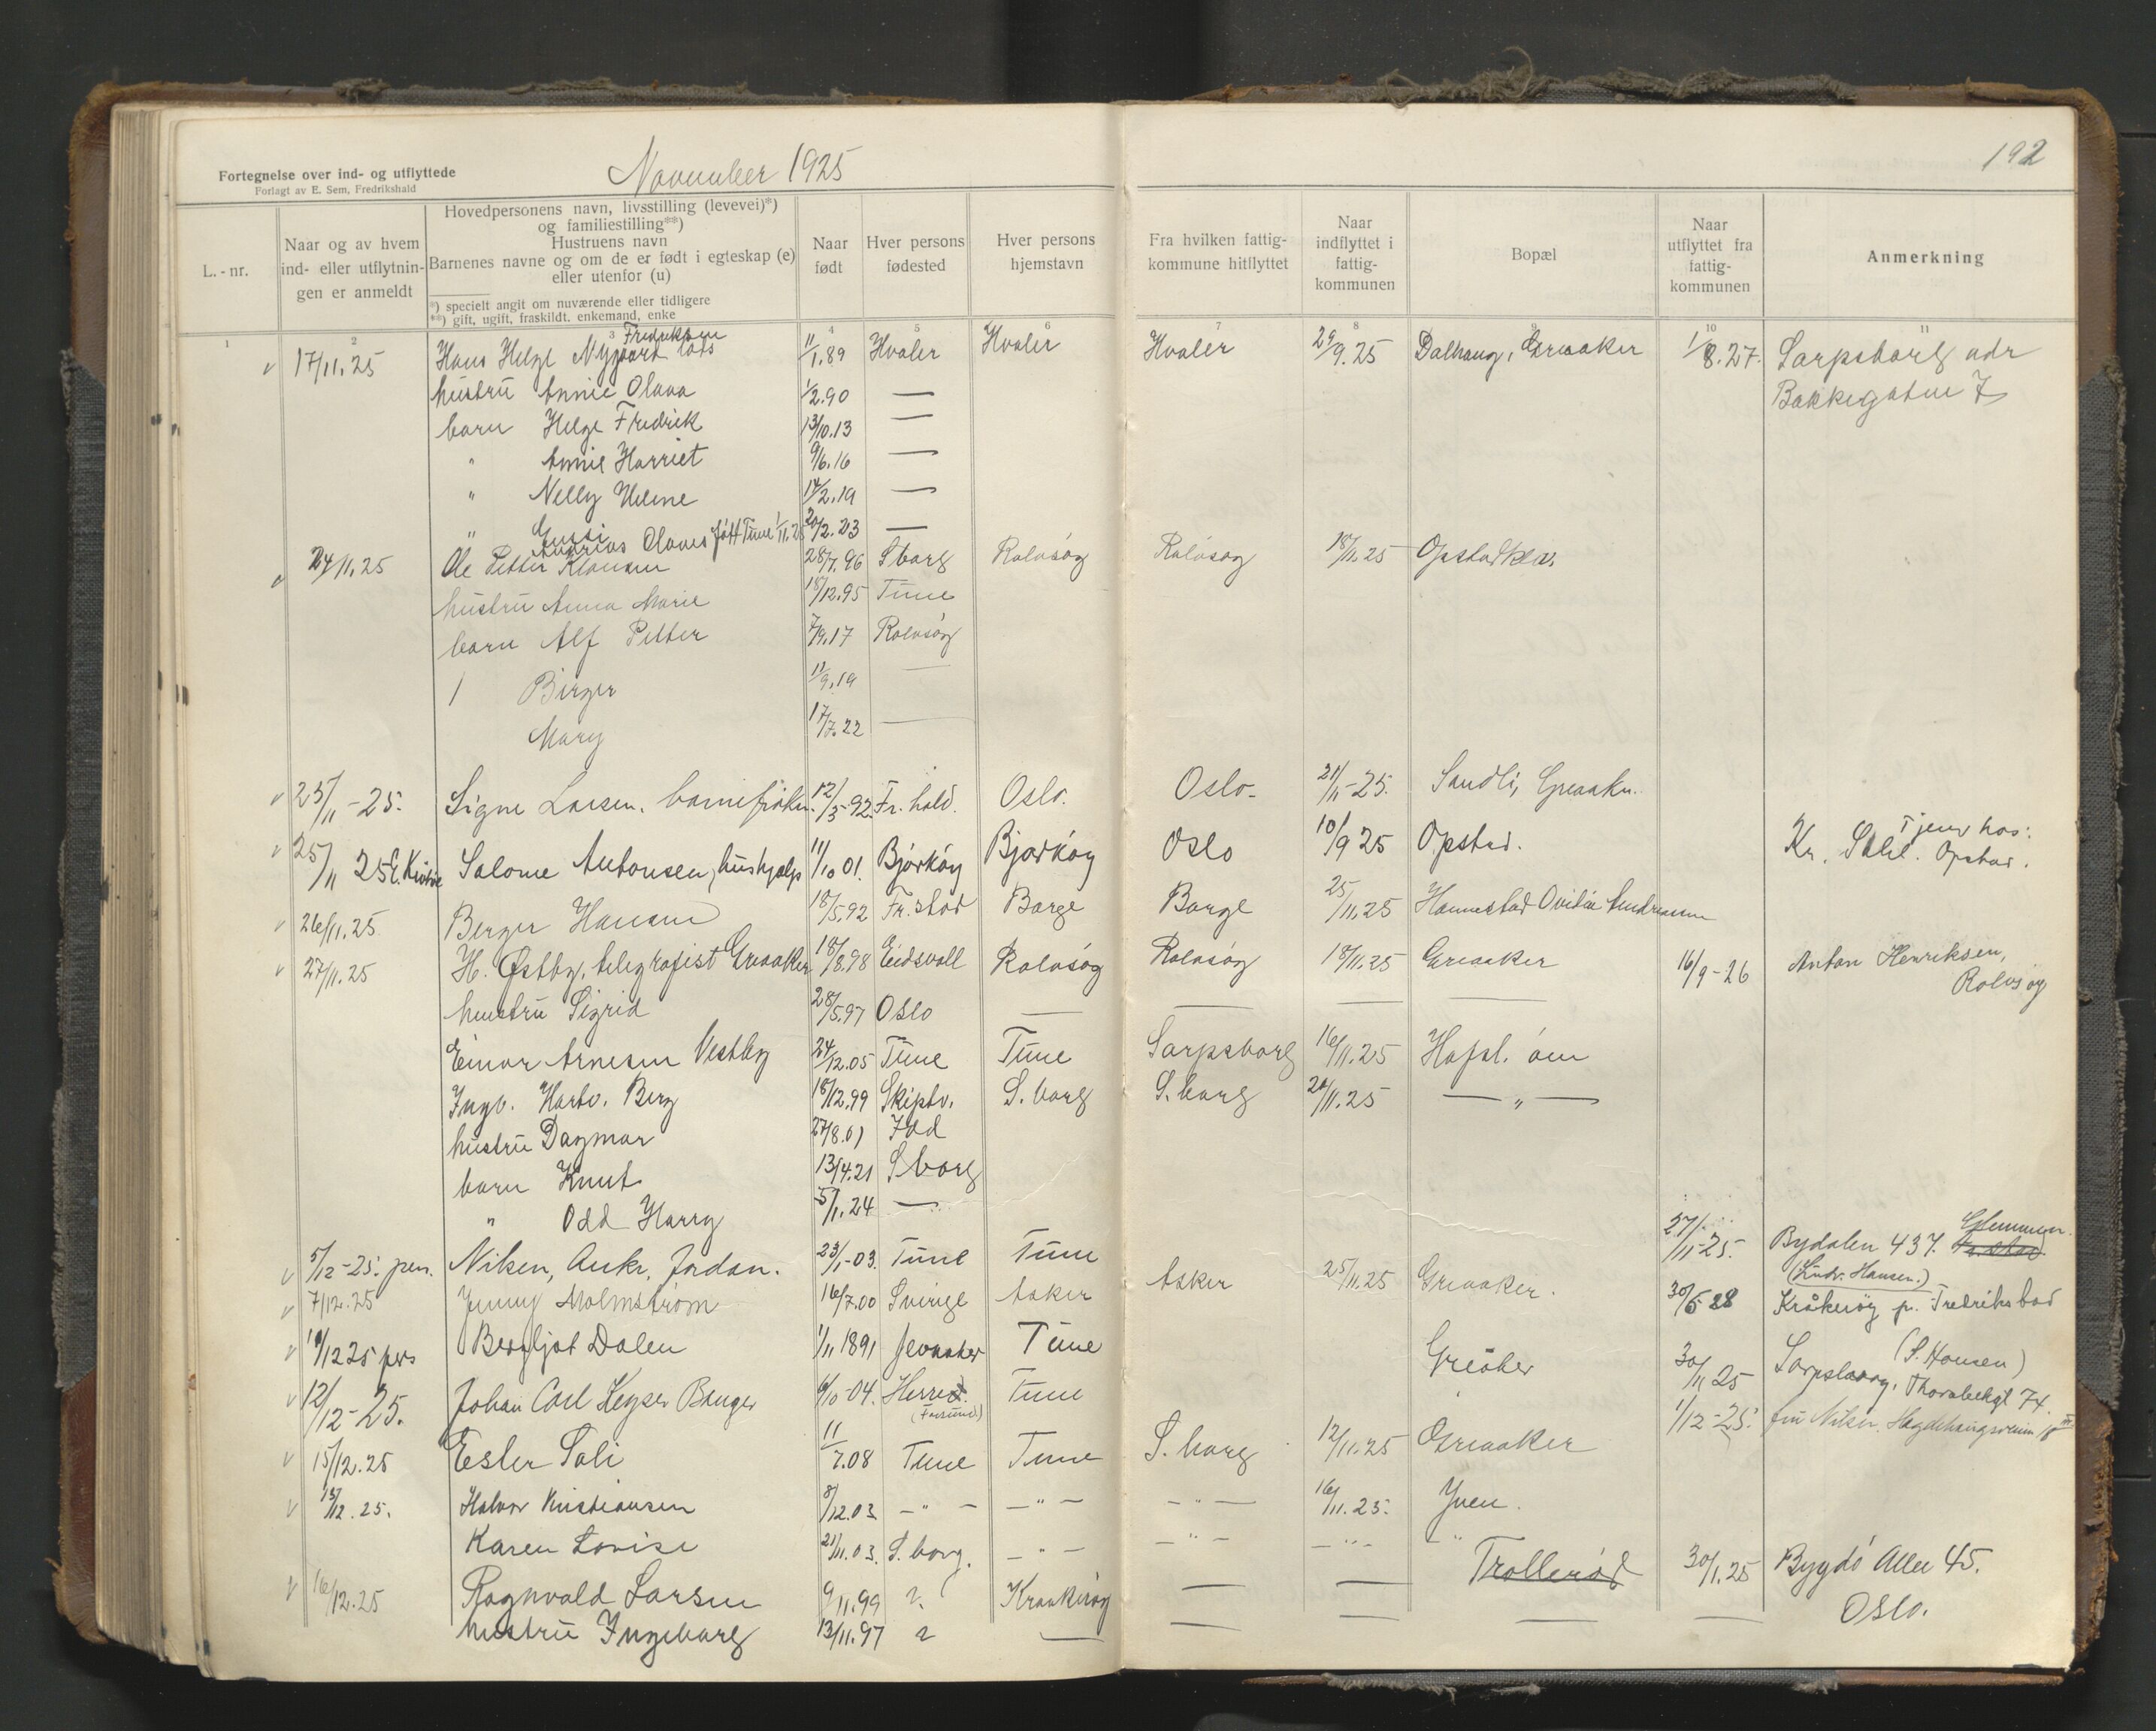 192
November 1925
Fortegnelse over ind- og utflyttede
Forlagt av E. Sem, Fredrikshald
L.-nr.
Naar og av hvem ind- eller utflytnin-gen er anmeldt
Hovedpersonens navn, livsstilling (levevei)*) og familiestilling**)
Hustruens navn
Barnenes navne og om de er født i egteskap (e) eller utenfor (u)
*) specielt angit om nuværende eller tidligere
**) gift, ugift, fraskildt. enkemand, enke
Naar født
Hver persons fødested
Hver persons hjemstavn
Fra hvilken fattig-kommune hitflyttet
Naar indflyttet i fattig-kommunen
Bopæl
Naar utflyttet fra fattig-kommunen
Anmerkning
1 2 3 4 5 6 7 8 9 10 11
Fredriksen
v 17/11.25 Hans Helge Nygaard los 11/1.89 Hvaler Hvaler Hvaler 29/9.25 Dalhaug, Greaaker 1/8.27. Sarpsborg adr
hustru Annie Olava 1/2.90 — Bakkegaten 7
barn Helge Fredrik 13/10.13 —
" Annie Harriet 9/6.16 —
" Nelly Helene 14/2.19 —
" Gussi 20/2.23 —
Andreas Olaves født Tune 1/11.25
v 24/11.25 Ole Petter Klausen 28/7.96 S borg Rolvsøy Rolvsøy 18/11.25 Opstad
hustru Anna Marie 18/12.95 Tune
barn Alf Petter 7/9.17 Rolvsøy
Birger 11/9.19 —
Mary 17/7.22 —
v 23/11-25. Signe Larsen, barnefrøken. 12/3-92. Fr. hald. Oslo. Oslo- 21/11-25. Sandli, Greaaker.
v 25/11 25 Salome Antonsen, hushjælp 11/10 01. Bjørkøy Bjarkøy Oslo 10/9 25 Opstad. Tjener hos:
Kr. Opstad.
v 26/11.25 Berger Hansen 18/5.92 Fr.stad Borge Borge 25/11.25 Hannestad Ovidia Andreassen
v 27/11.25 H. Østby, telegrafist Greaaker 18/8.98 Eidsvoll Rolvsøy Rolvsøy 18/11.25 Greaaker 16/9-26 Anton Henriksen,
Rolvsøy
hustru Sigrid 28/5.97 Oslo — — — —
Einar Arnesen Vestby 24/12.05 Tune Tune Sarpsborg 16/11.25 Hafsl. øen
Ingv. Hartv. Berg 18/12.99 Skiptv. S. borg S. borg 20/11.25 — " —
hustru Dagmar 27/8.01 Idd
barn Knut 13/4.21 S borg
" Odd Harry 5/1.24 —
v 5/12-25. pers. Nilsen, Ankr. Jordan. 23/1-03. Tune Tune 27/11-25. Bydalen 437. Glemmen.
(Ludv. Hansen.)
v 7/12.25 Jenny Malmstrøm 16/7.00 Sverige Asker Asker 25/11.25 Greaaker. 30/5 28 Kråkerøy pr. Fredrikstad
v 10/12 25 pers Bergljot Dalen 1/11 1891 Jevnaker Tune Greåker 30/11 25 Sarpsborg, (S. Hansen)
Thornbekgt 74.
v 12/12-25. Johan Carl Keyser Banger 6/10-04. Herred. Tune 1/12-25. fru Nilsen. Hegdehaugsveien
(Farsund)
v 15/12.25 Ester Sali 11/7.08 Tune Tune S. borg 12/11.25 Greaaker
v 15/12.25. Halvor Kristiansen 8/12.03 — " — — " — — " — 16/11.25. Yven.
Karen Lovise 21/11.03. S. borg. — " — — " — — " — "
v 16/12.25 Ragnvald Larsen 9/11.99 ? Kraakerøy — — Trollerød 30/1.25 Bygdø Allee 45.
Oslo.
hustru Ingeborg 13/11.97 ? — — — — —